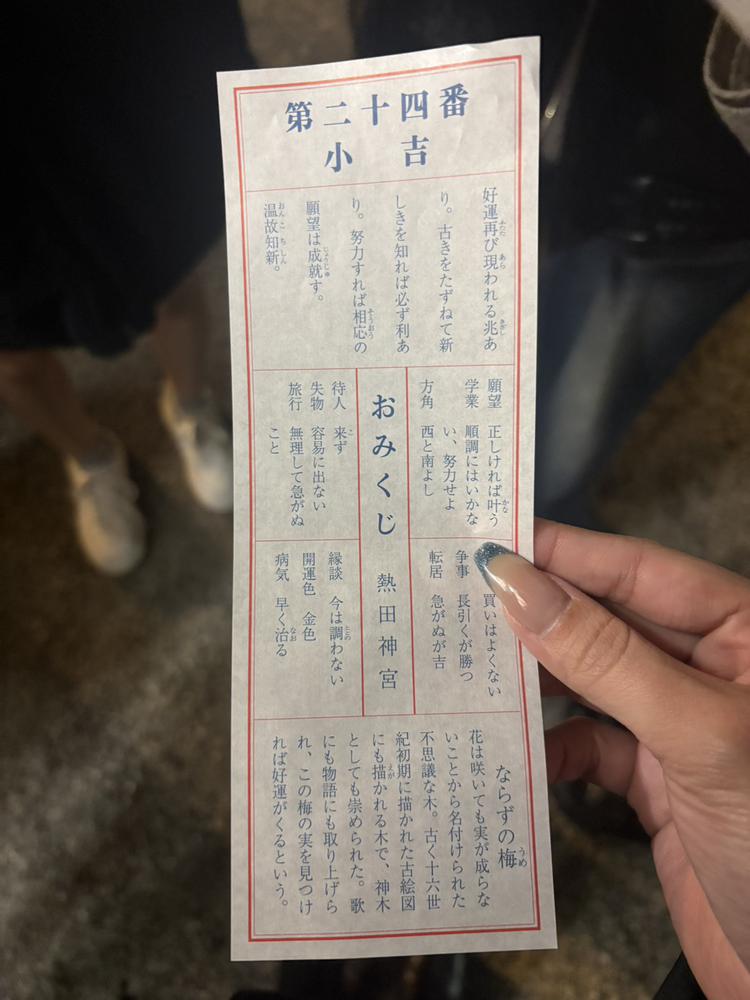 第二十四番
小吉
好運再び現われる兆あ
り。古きをたずねて新
しきを知れば必ず利あ
り。努力すれば相応の
願望は成就す。
温故知新。
願望 正しければ叶う
学業 順調にはいかな
い、努力せよ
方角 西と南よし
買いはよくない
争事 長引くが勝つ
転居 急がぬが吉
おみくじ 熱田神宮
待人 来ず
失物 容易に出ない
旅行 無理して急がぬ
こと
縁談 今は調わない
開運色 金色
病気 早く治る
ならずの梅
花は咲いても実が成らな
いことから名付けられた
不思議な木。古く十六世
紀初期に描かれた古絵図
にも描かれる木で、神木
としても崇められた。歌
にも物語にも取り上げら
れ、この梅の実を見つけ
れば好運がくるという。